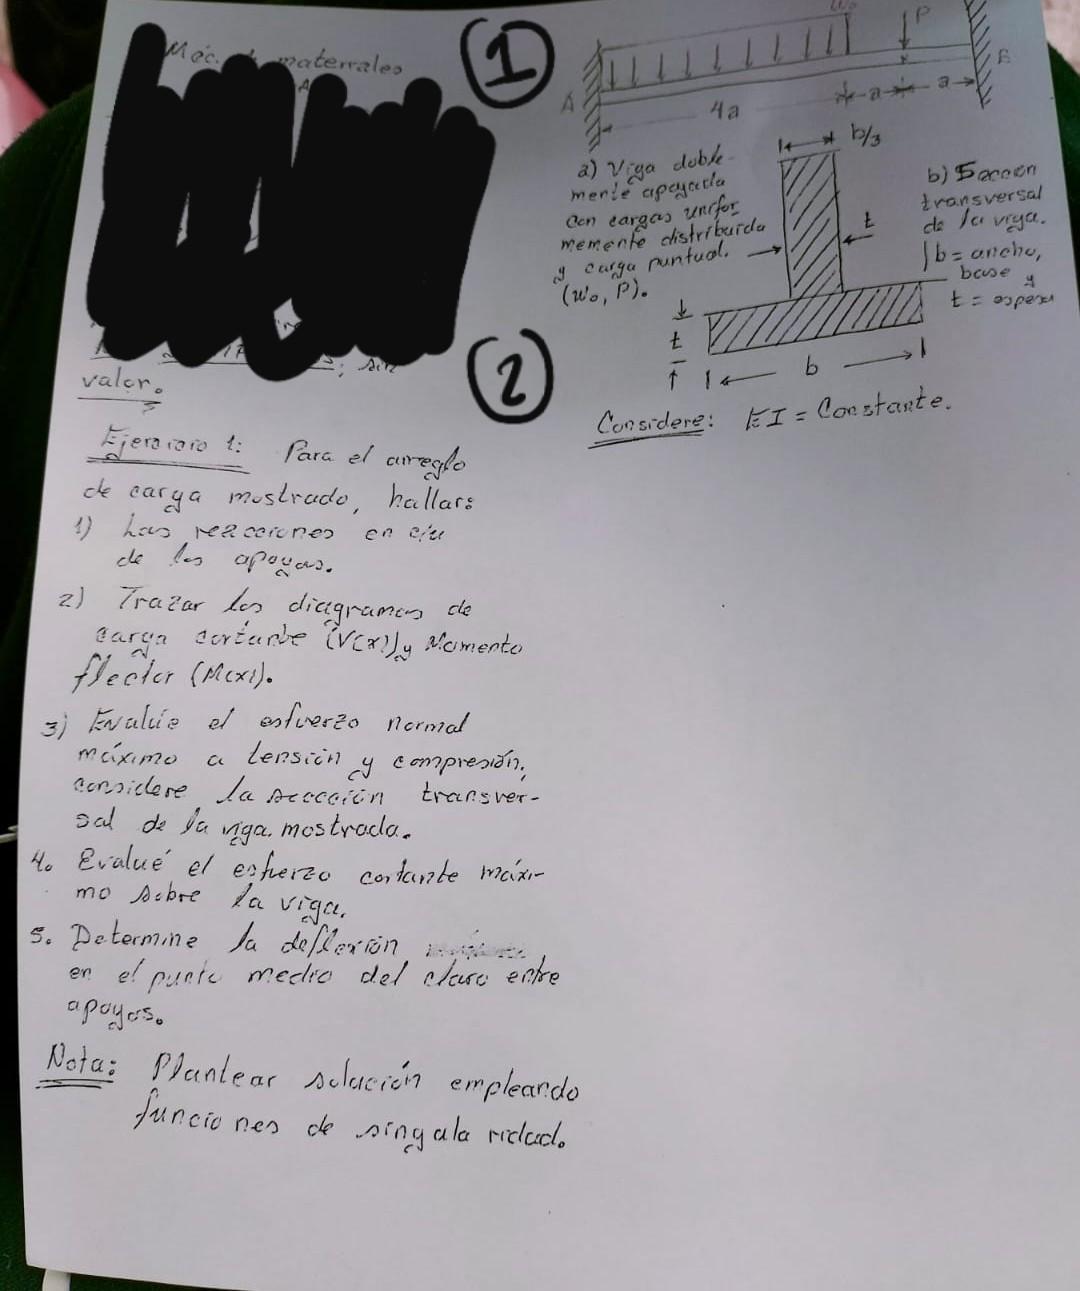 Méc. materiales
A
1
w₀
P
A
B
4a
a
a
a) Viga doble-
mente apoyada
con cargas unifor
memente distribuida
y carga puntual.
(w₀, P).
b/3
t
t
b
b) Sección
transversal
de la viga.
b = ancho,
base y
t = espesor
2
Considere: EI = Constante.
; sin
valor.
Ejercicio 1: Para el arreglo
de carga mostrado, hallar:
1) Las reacciones en c/u
de los apoyos.
2) Trazar los diagramas de
carga cortante (V(x)) y Momento
flector (M(x)).
3) Evalúe el esfuerzo normal
máximo a tensión y compresión,
considere la sección transver-
sal de la viga mostrada.
4. Evalué el esfuerzo cortante máxi-
mo sobre la viga.
5. Determine la deflexión
en el punto medio del claro entre
apoyos.
Nota: Plantear solución empleando
funciones de singularidad.